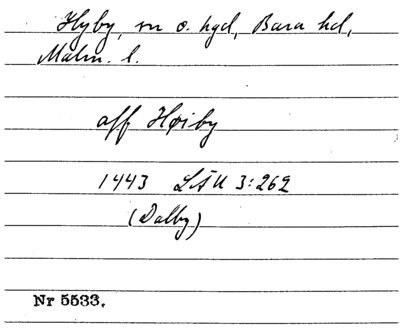 Hyby, sn o. hgd, Bara hd,
Malm. l.
aff Høiby
1443 LÄU 3:262
(Dalby)
Nr 5533.